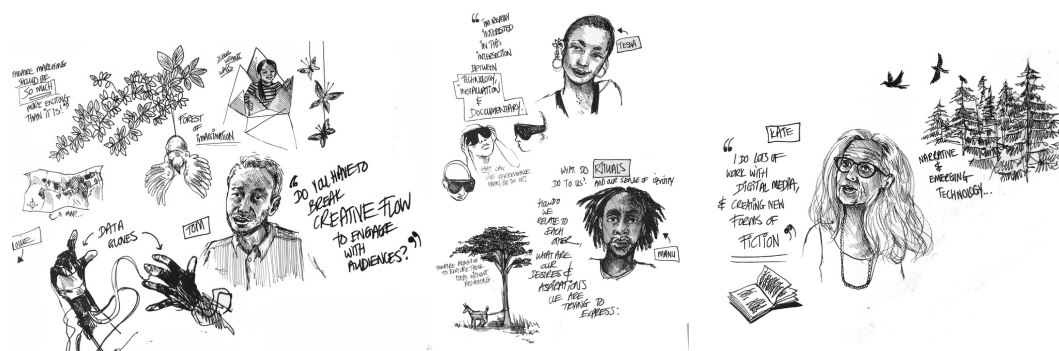 THEATRE MARKETING
SHOULD BE
SO MUCH
MORE EXCITING
THAN IT IS!
FOREST
OF
IMAGINATION
A MAP...
DATA
GLOVES
TOM
“DO YOU HAVE TO
BREAK
CREATIVE FLOW
TO ENGAGE
WITH
AUDIENCES?”
“I'M REALLY
INTERESTED
IN THIS
INTERSECTION
BETWEEN
TECHNOLOGY,
INSTALLATION
&
DOCUMENTARY.
WHAT CAN
WHAT DO RITUALS
DO TO US? AND OUR SENSE OF IDENTITY
HOW DO
WE
RELATE TO
EACH
OTHER...
WHAT ARE
OUR
DESIRES &
ASPIRATIONS
WE ARE
TRYING TO
EXPRESS.
MANU
KATE
“I DO LOTS OF
WORK WITH
DIGITAL MEDIA,
& CREATING NEW
FORMS OF
FICTION”
NARRATIVE
&
EMERGING
TECHNOLOGY...